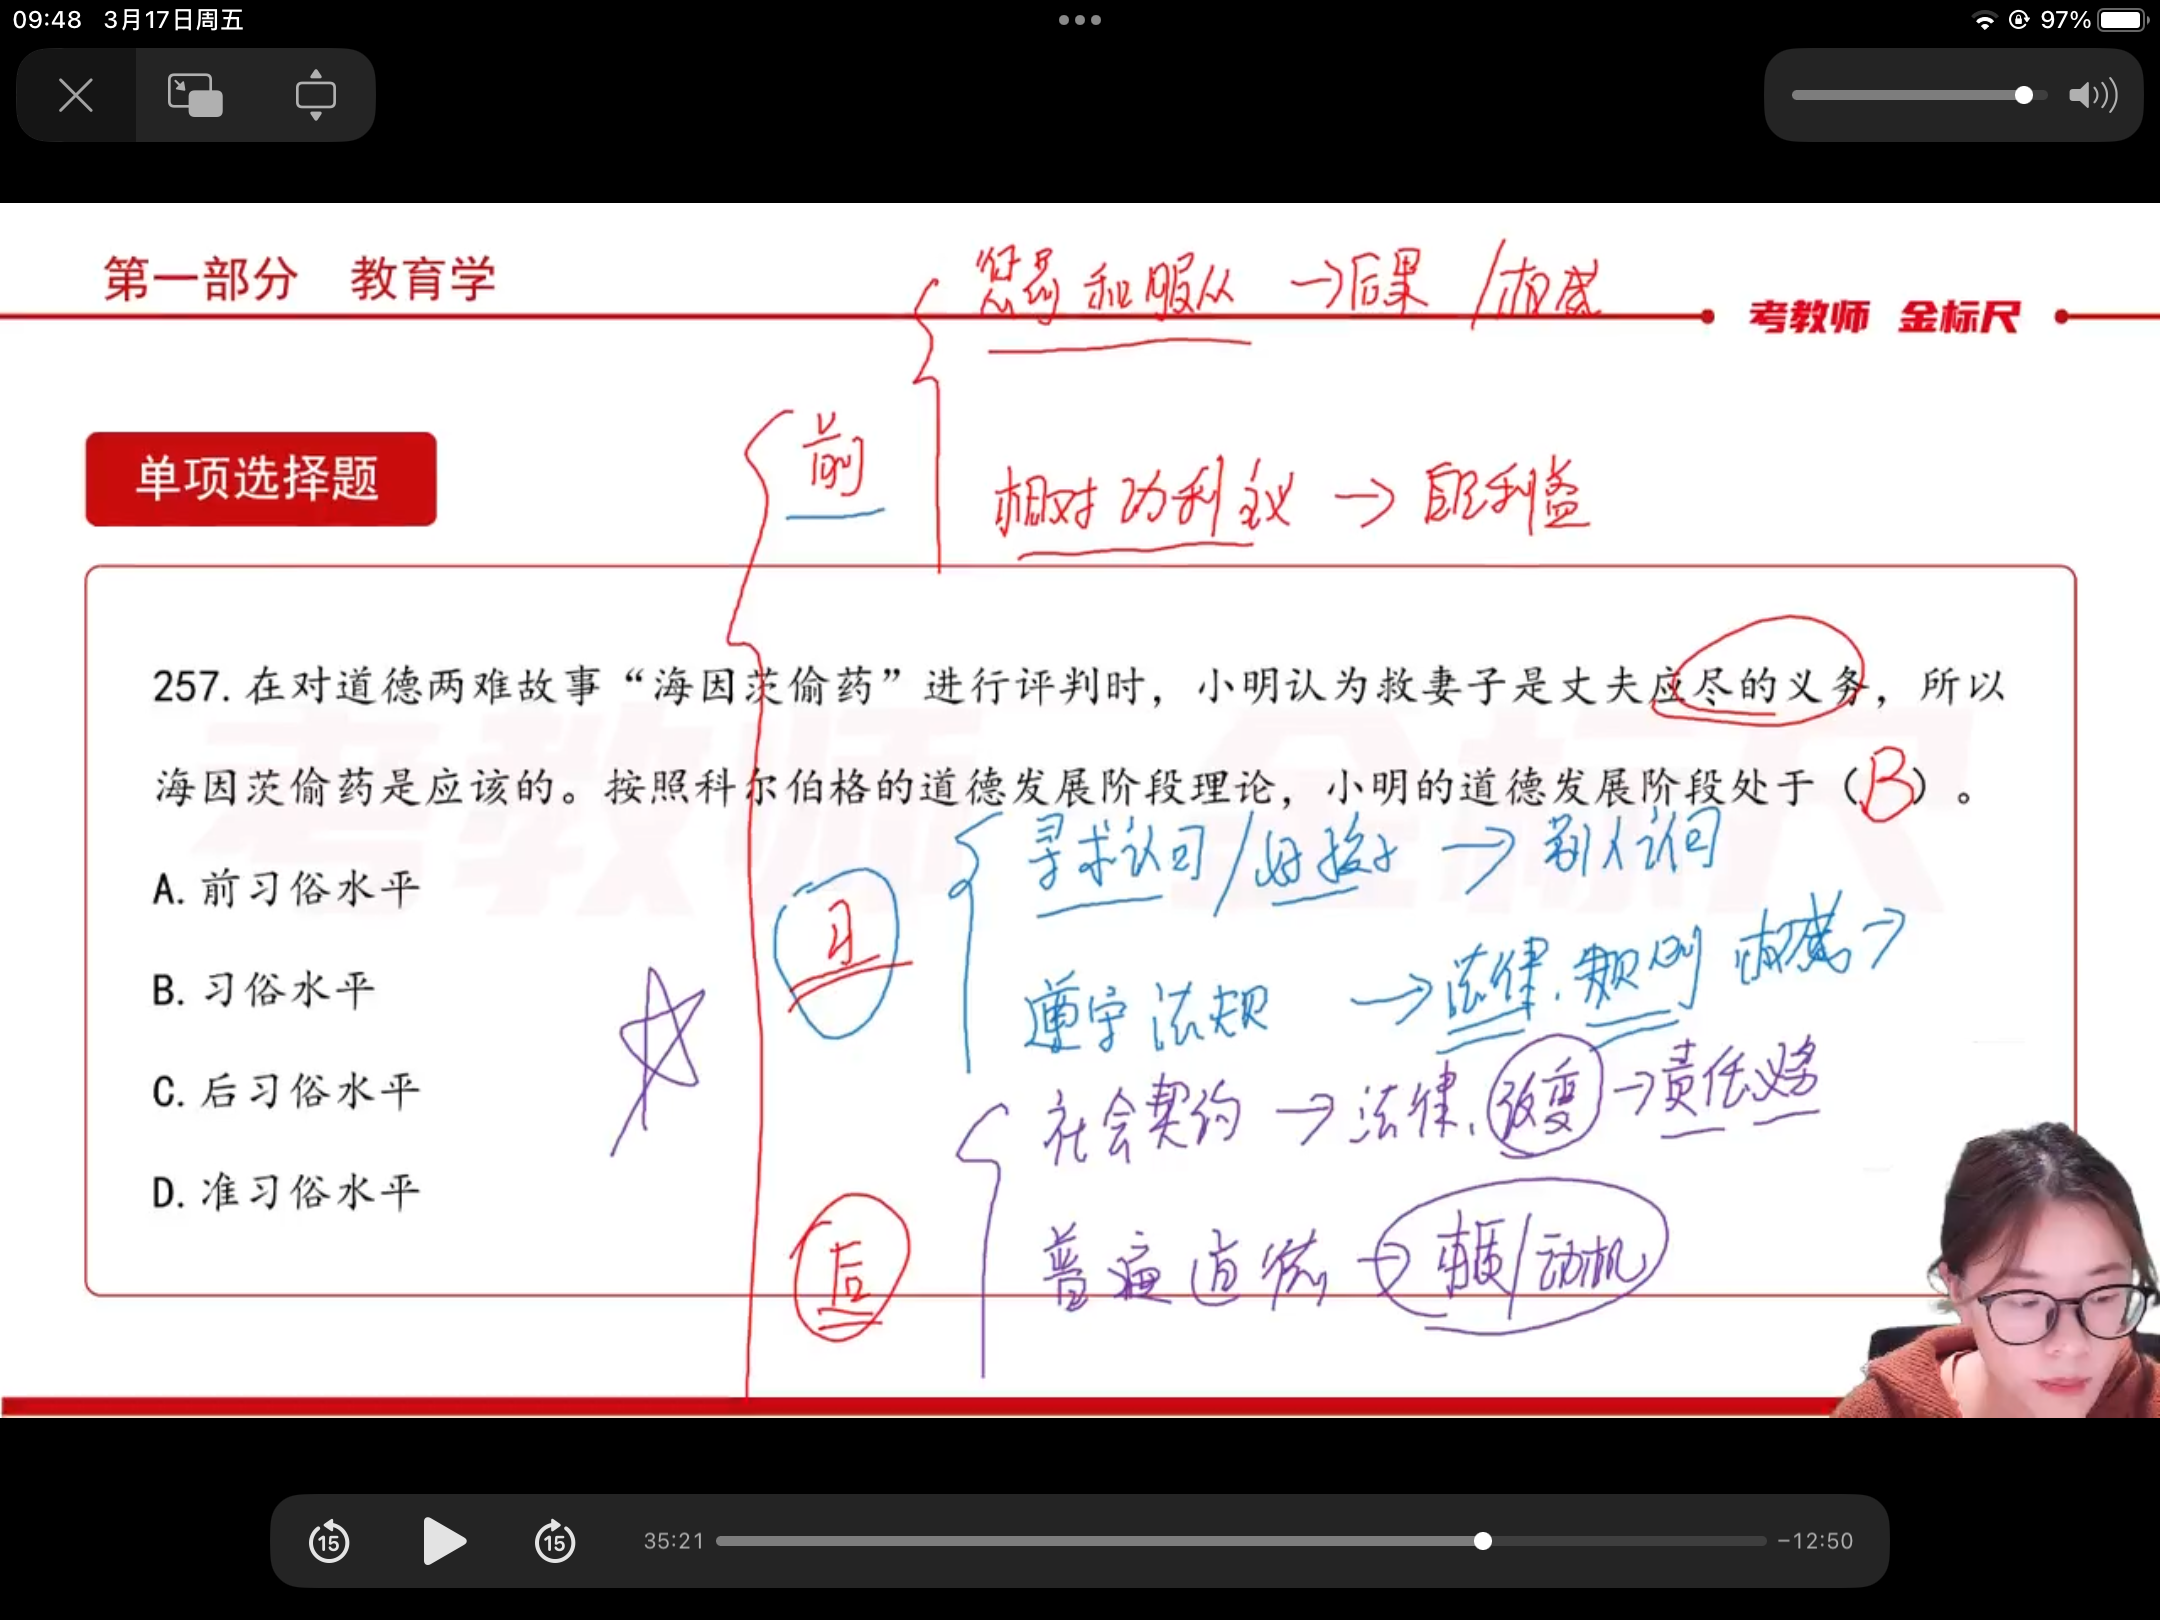 09:48 3月17日周五
97%
第一部分 教育学
惩罚和服从 →后果 /权威
考教师 金标尺
前
相对功利主义 → 自己利益
单项选择题
257. 在对道德两难故事“海因茨偷药”进行评判时，小明认为救妻子是丈夫应尽的义务，所以
海因茨偷药是应该的。按照科尔伯格的道德发展阶段理论，小明的道德发展阶段处于（B）。
寻求认可/好孩子 → 别人认可
A. 前习俗水平
习
遵守法规 →法律、规则 权威→
B. 习俗水平
社会契约 → 法律、改变 →责任义务
C. 后习俗水平
D. 准习俗水平
后
普遍道德 → 本质/动机
考教师 金标尺
15
15
35:21
-12:50